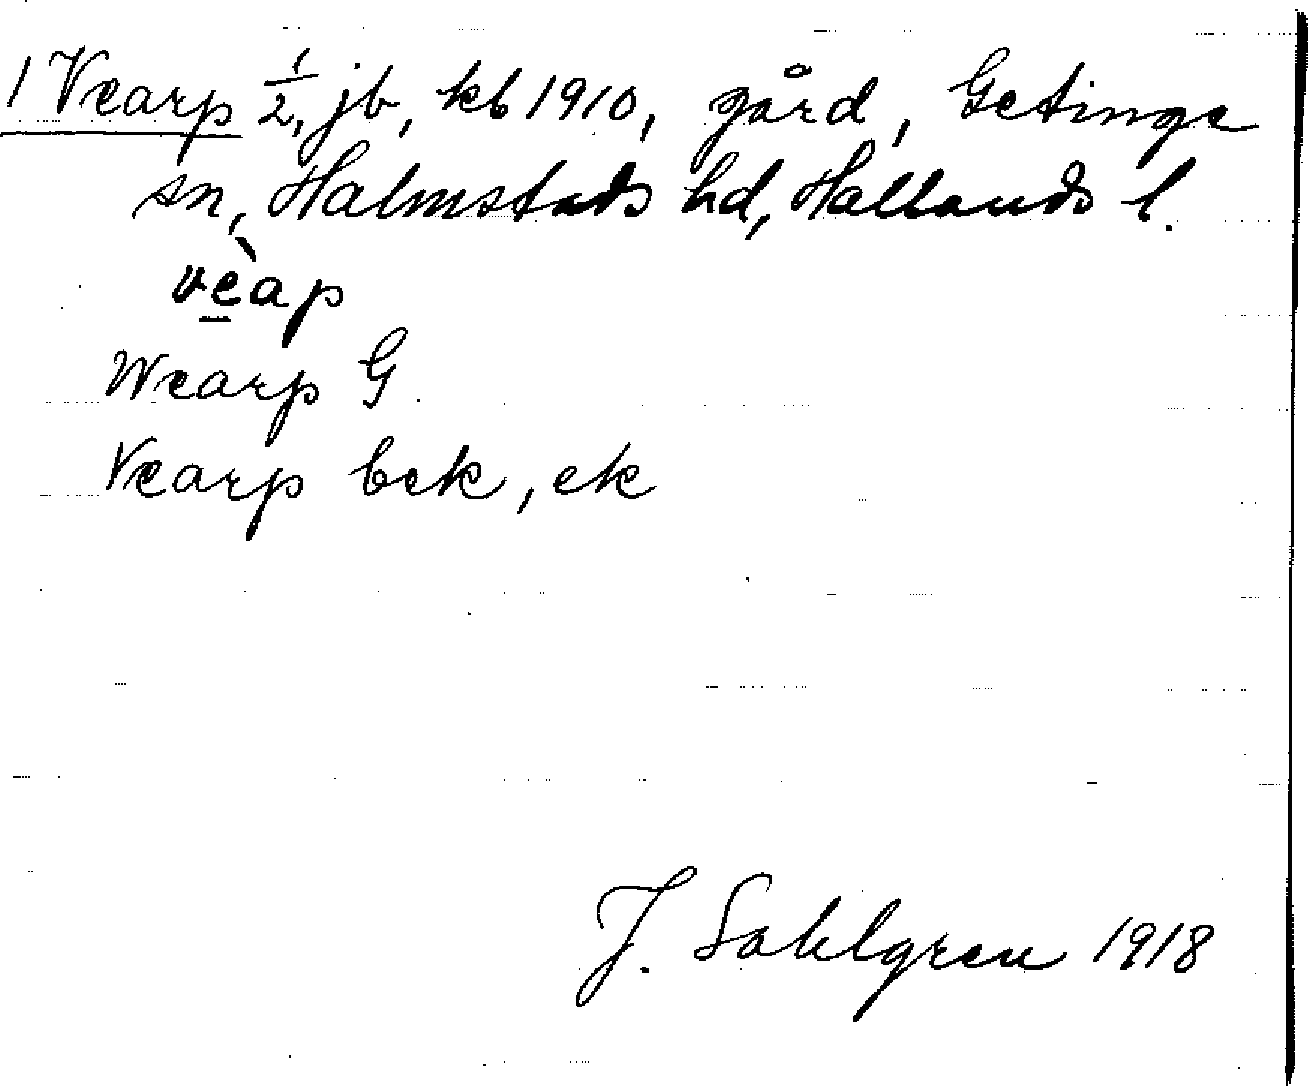 1 Vearp 1/2, jb, kb 1910, gård, Getinge
sn, Halmstads hd, Hallands l.
vè̱ap
Wearp G.
Vearp bek, ek
J. Sahlgren 1918